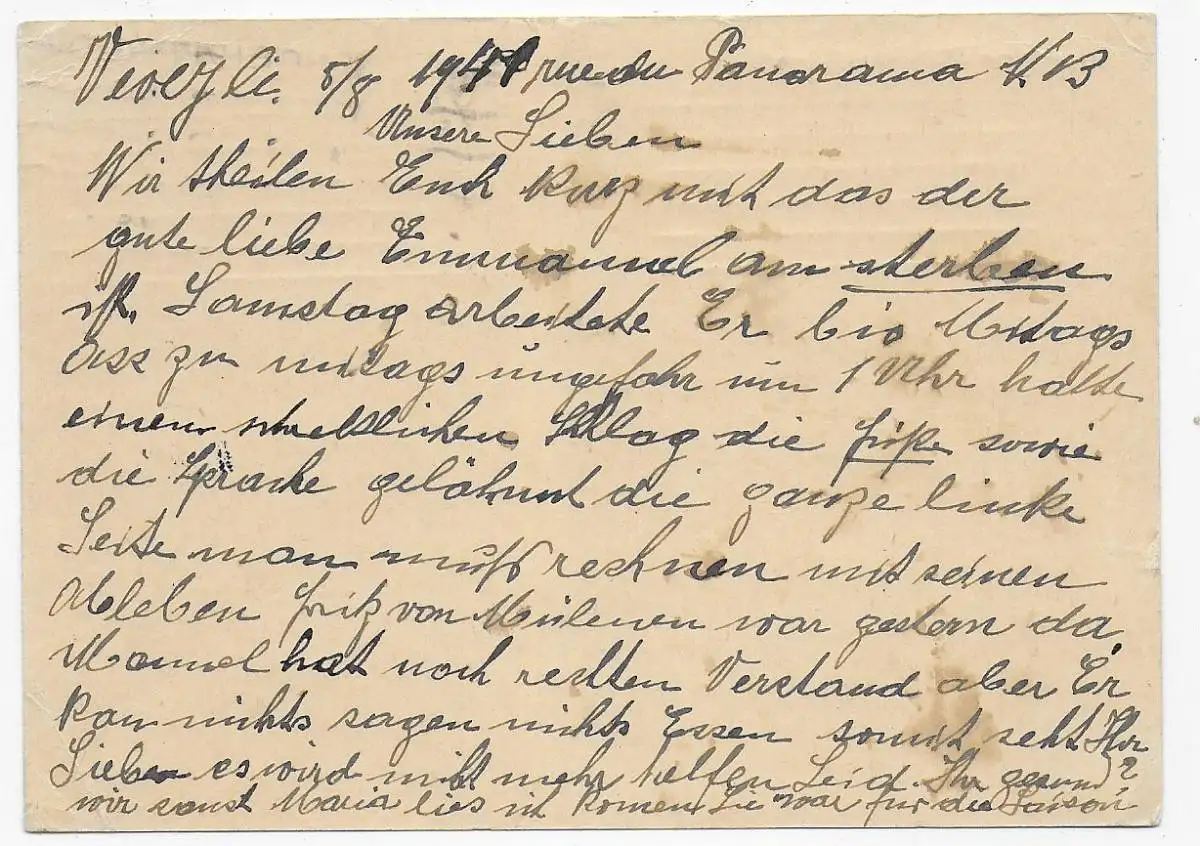 5/8 1941 rue du Panorama N. B
Unsere Lieben
Wir theilen Euch kurz mit das der
gute liebe Emmanuel am sterben
ist. Samstag arbeitete Er bis Mitags
Ass zu mitags ungefähr um 1 Uhr hatte
einen schreklichen Schlag die füße sowie
die Sprache gelähmt die ganze linke
Seite man muß rechnen mit seinen
Ableben fritz von Mülenen war gestern da
Mannel hat noch rechten Verstand aber Er
kan nichts sagen nichts Essen somit seht Ihr
Lieben es wird nicht mehr helfen Seid Ihr gesund?
wir sonst Maria lies ich komen Sie war für die Saison